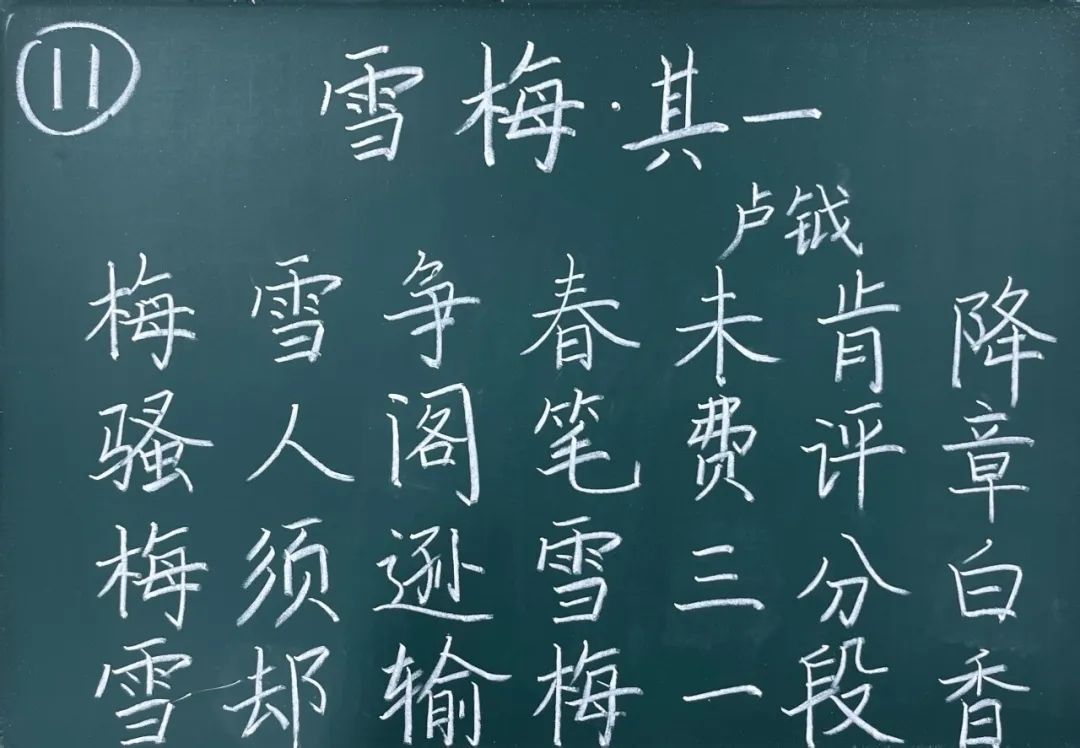 11
雪梅·其一
卢钺
梅雪争春未肯降
骚人阁笔费评章
梅须逊雪三分白
雪却输梅一段香